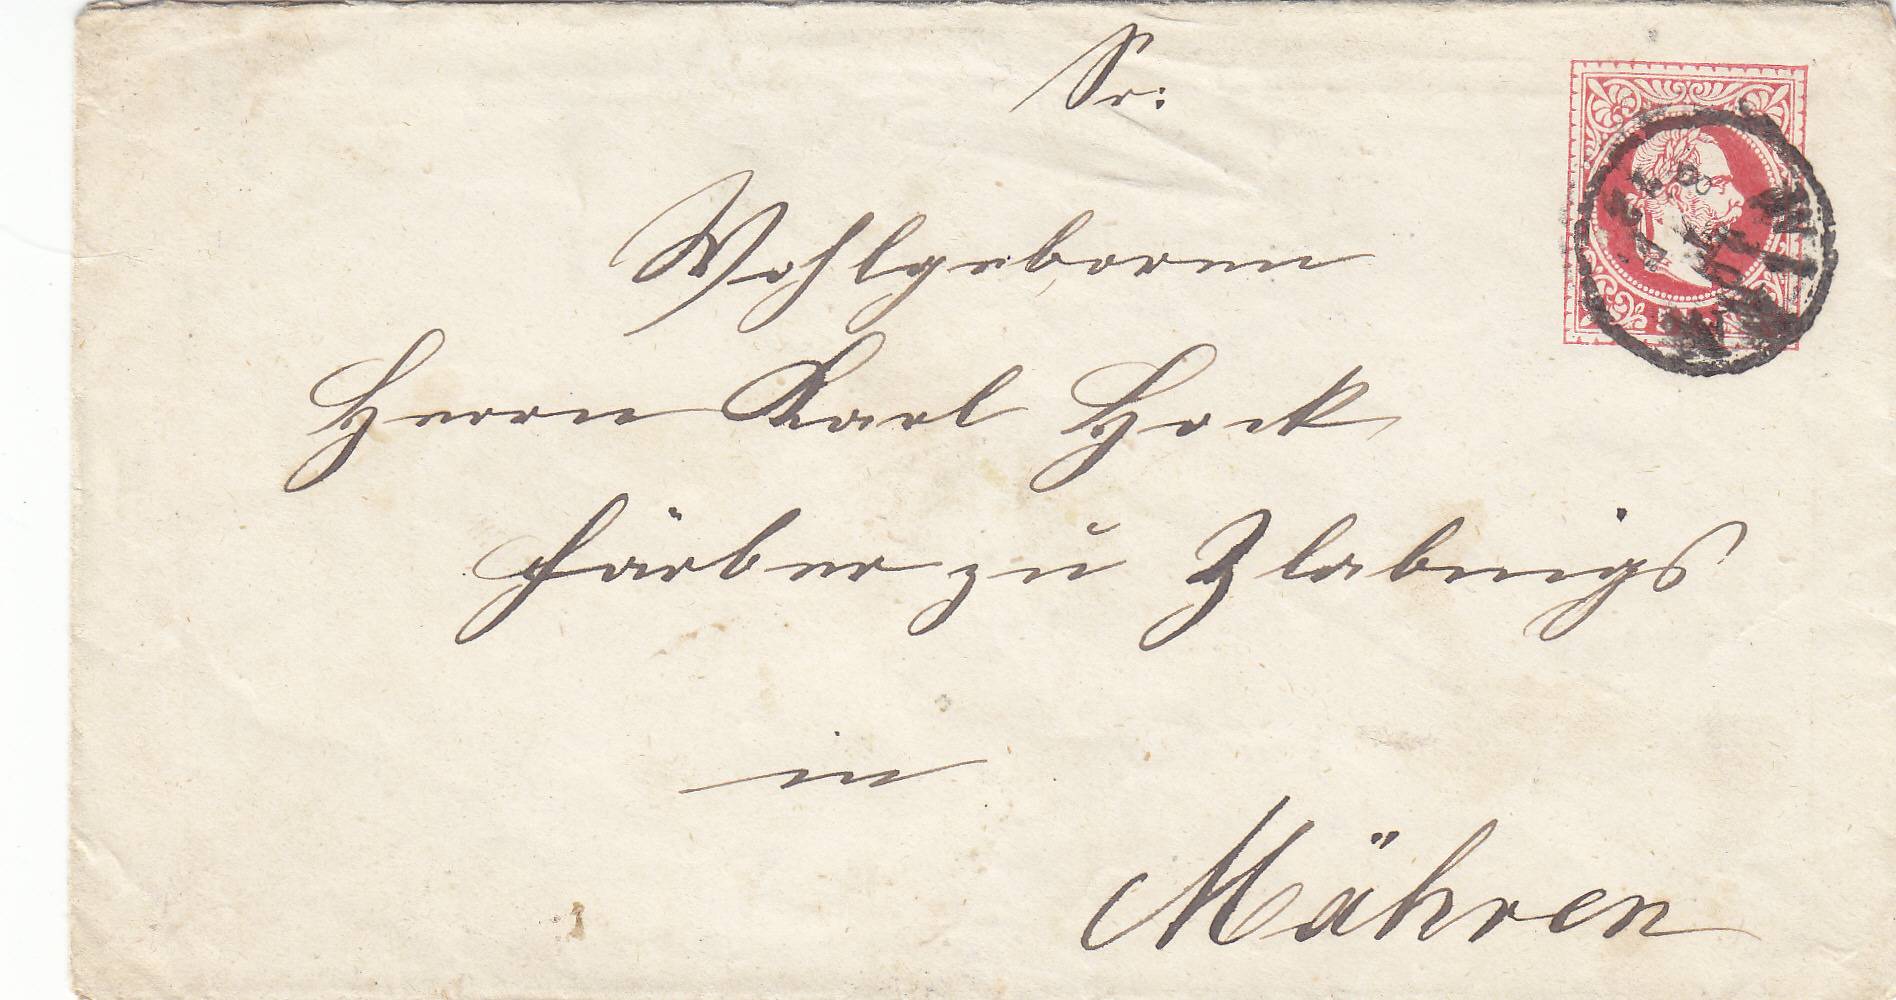 Sr:
Wohlgeboren
Herrn Karl Hock
Färber zu Zlabings
in
Mähren
WIEN